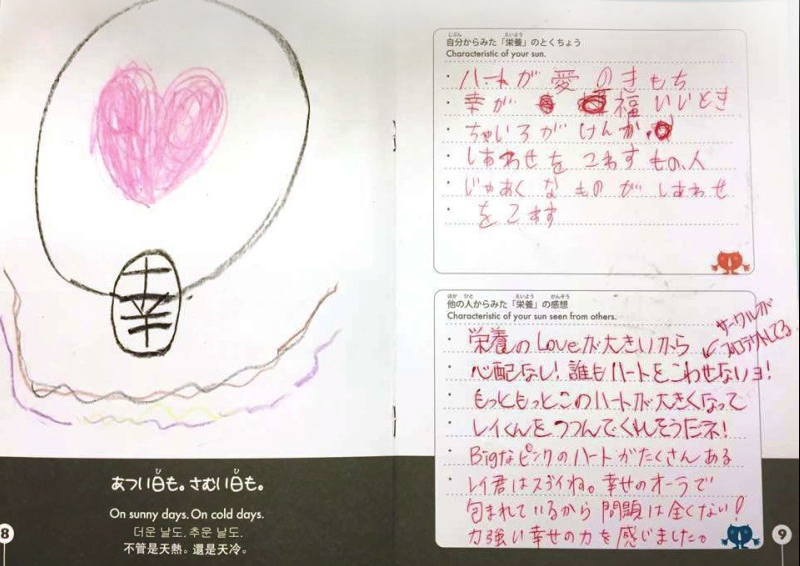 幸
あつい日も。さむい日も。
On sunny days. On cold days.
더운 날도. 추운 날도.
不管是天熱。還是天冷。
8
自分からみた「栄養」のとくちょう
Characteristic of your sun.
・ハートが愛のきもち
・幸が 福いいとき
・ちゃいろがけんか。
・しあわせをこわすもの、人
・じゃあくなものがしあわせ
・をこわす
他の人からみた「栄養」の感想
Characteristic of your sun seen from others.
・栄養のLoveが大きいから
サークルが
プロテクトしてる
・心配なし!誰もハートをこわせないヨ!
・もっともっとこのハートが大きくなって
・レイくんをつつんでくれそうだネ!
・Bigなピンクのハートがたくさんある
・レイ君はスゴイね。幸せのオーラで
包まれているから問題は全くない!
力強い幸せの力を感じました。
9